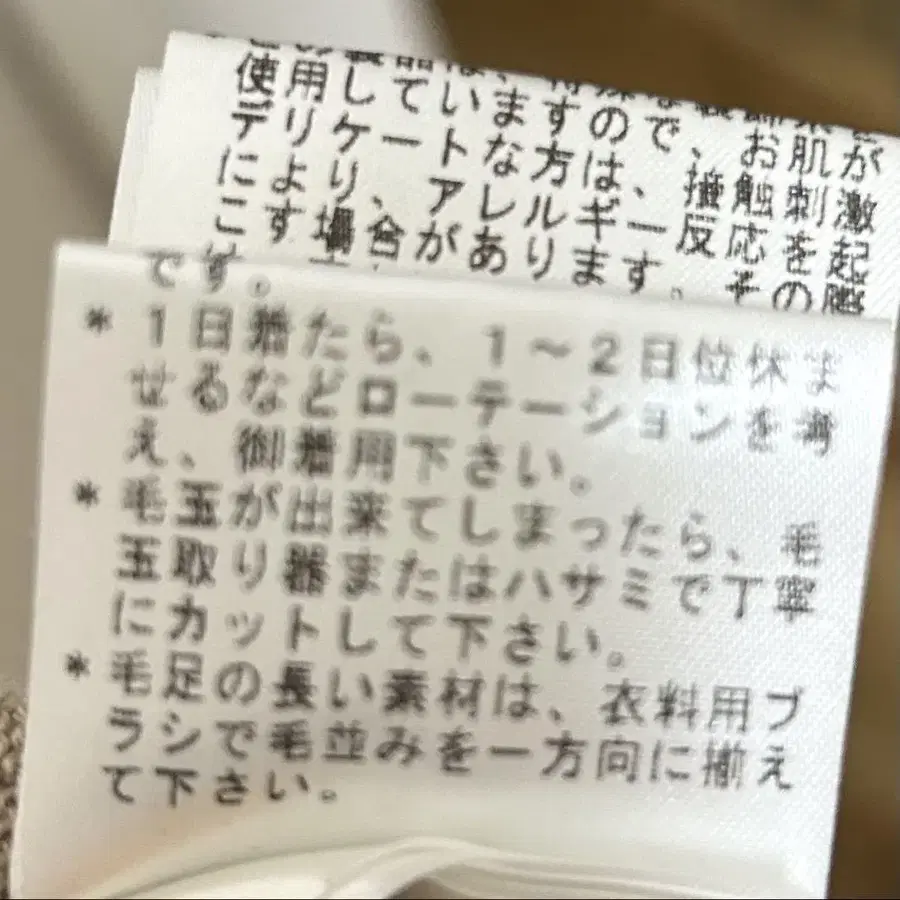 使用していますので、お肌が
デリケートな方は、接触刺激
により、アレルギー反応を起
こす場合があります。その際
です。
* 1日着たら、1～2日位休ま
せるなどローテーションを考
え、御着用下さい。
* 毛玉が出来てしまったら、毛
玉取り器またはハサミで丁寧
にカットして下さい。
* 毛足の長い素材は、衣料用ブ
ラシで毛並みを一方向に揃え
て下さい。